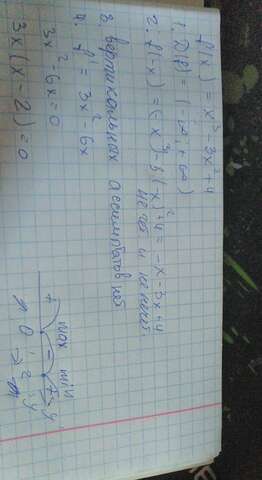 f(x) = x³ - 3x² + 4
1. D(f) = (-∞; +∞)
2. f(-x) = (-x)³ - 3(-x)² + 4 = -x - 3x + 4
не чет и не нечет.
3. вертикальных ассимптатов нет
4. f' = 3x² 6x
3x² - 6x = 0
3x(x - 2) = 0
max min
+ - + y'
0 2 y